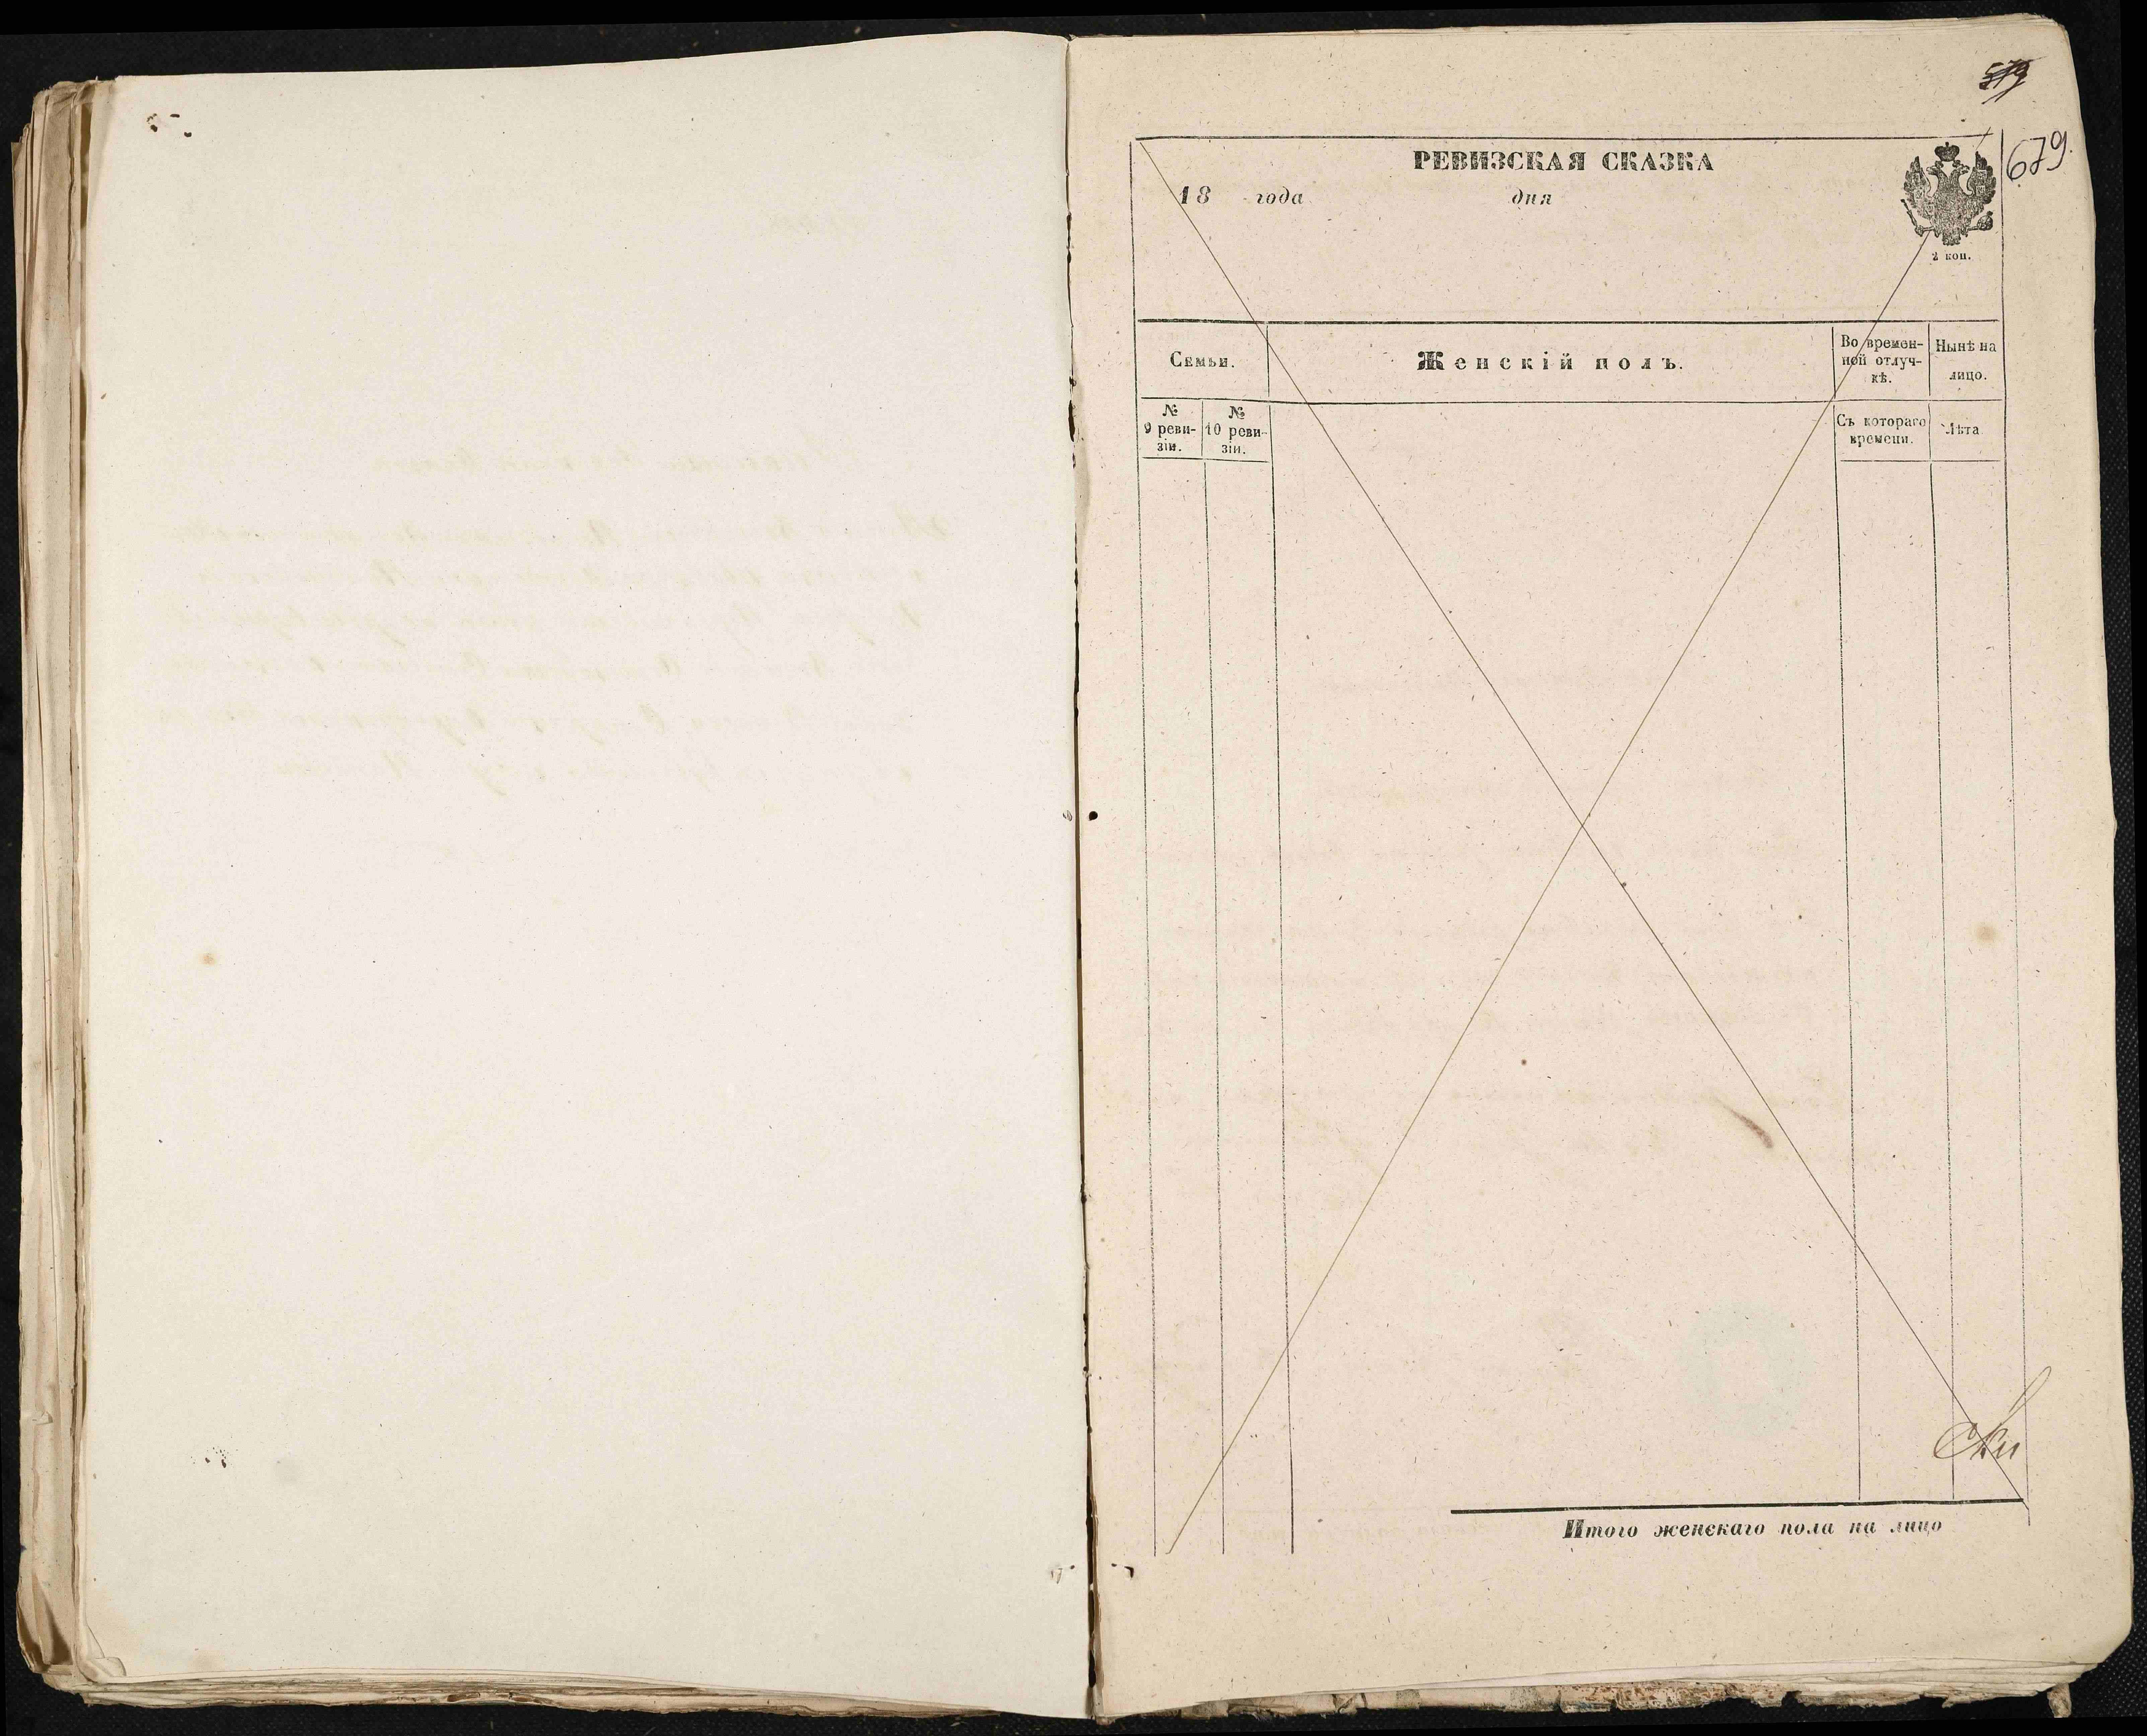 679.
РЕВИЗСКАЯ СКАЗКА
18 года дня
2 коп.
Семьи.
Женскій полъ.
Во времен-
ной отлуч-
кѣ.
Нынѣ на
лицо.
№
9 реви-
зіи.
№
10 реви-
зіи.
Съ котораго
времени.
Лѣта
Итого женскаго пола на лицо